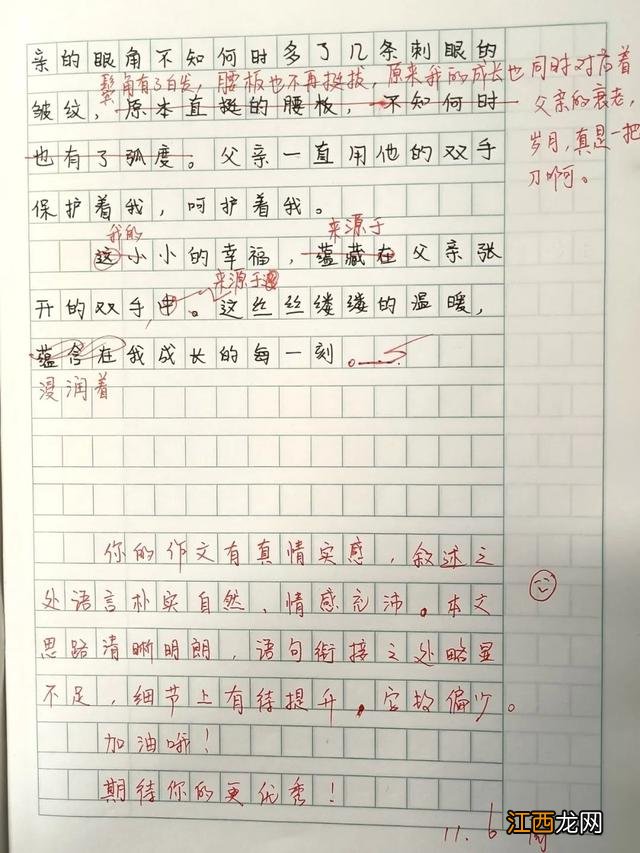 亲的眼角不知何时多了几条刺眼的
鬓角有了白发，腰板也不再挺拔，原来我的成长也同时对应着
皱纹，原本直挺的腰板，不知何时
父亲的衰老，
也有了弧度。父亲一直用他的双手
岁月，真是一把
刀啊。
保护着我，呵护着我。
我的
来源于
这小小的幸福，蕴藏在父亲张
来源于
开的双手中。这丝丝缕缕的温暖，
蕴含在我成长的每一刻。
浸润着
你的作文有真情实感，叙述之
处语言朴实自然，情感充沛。本文
思路清晰明朗，语句衔接之处略显
不足，细节上有待提升。字数偏少。
加油哦！
期待你的更优秀！
11.6
江西龙网